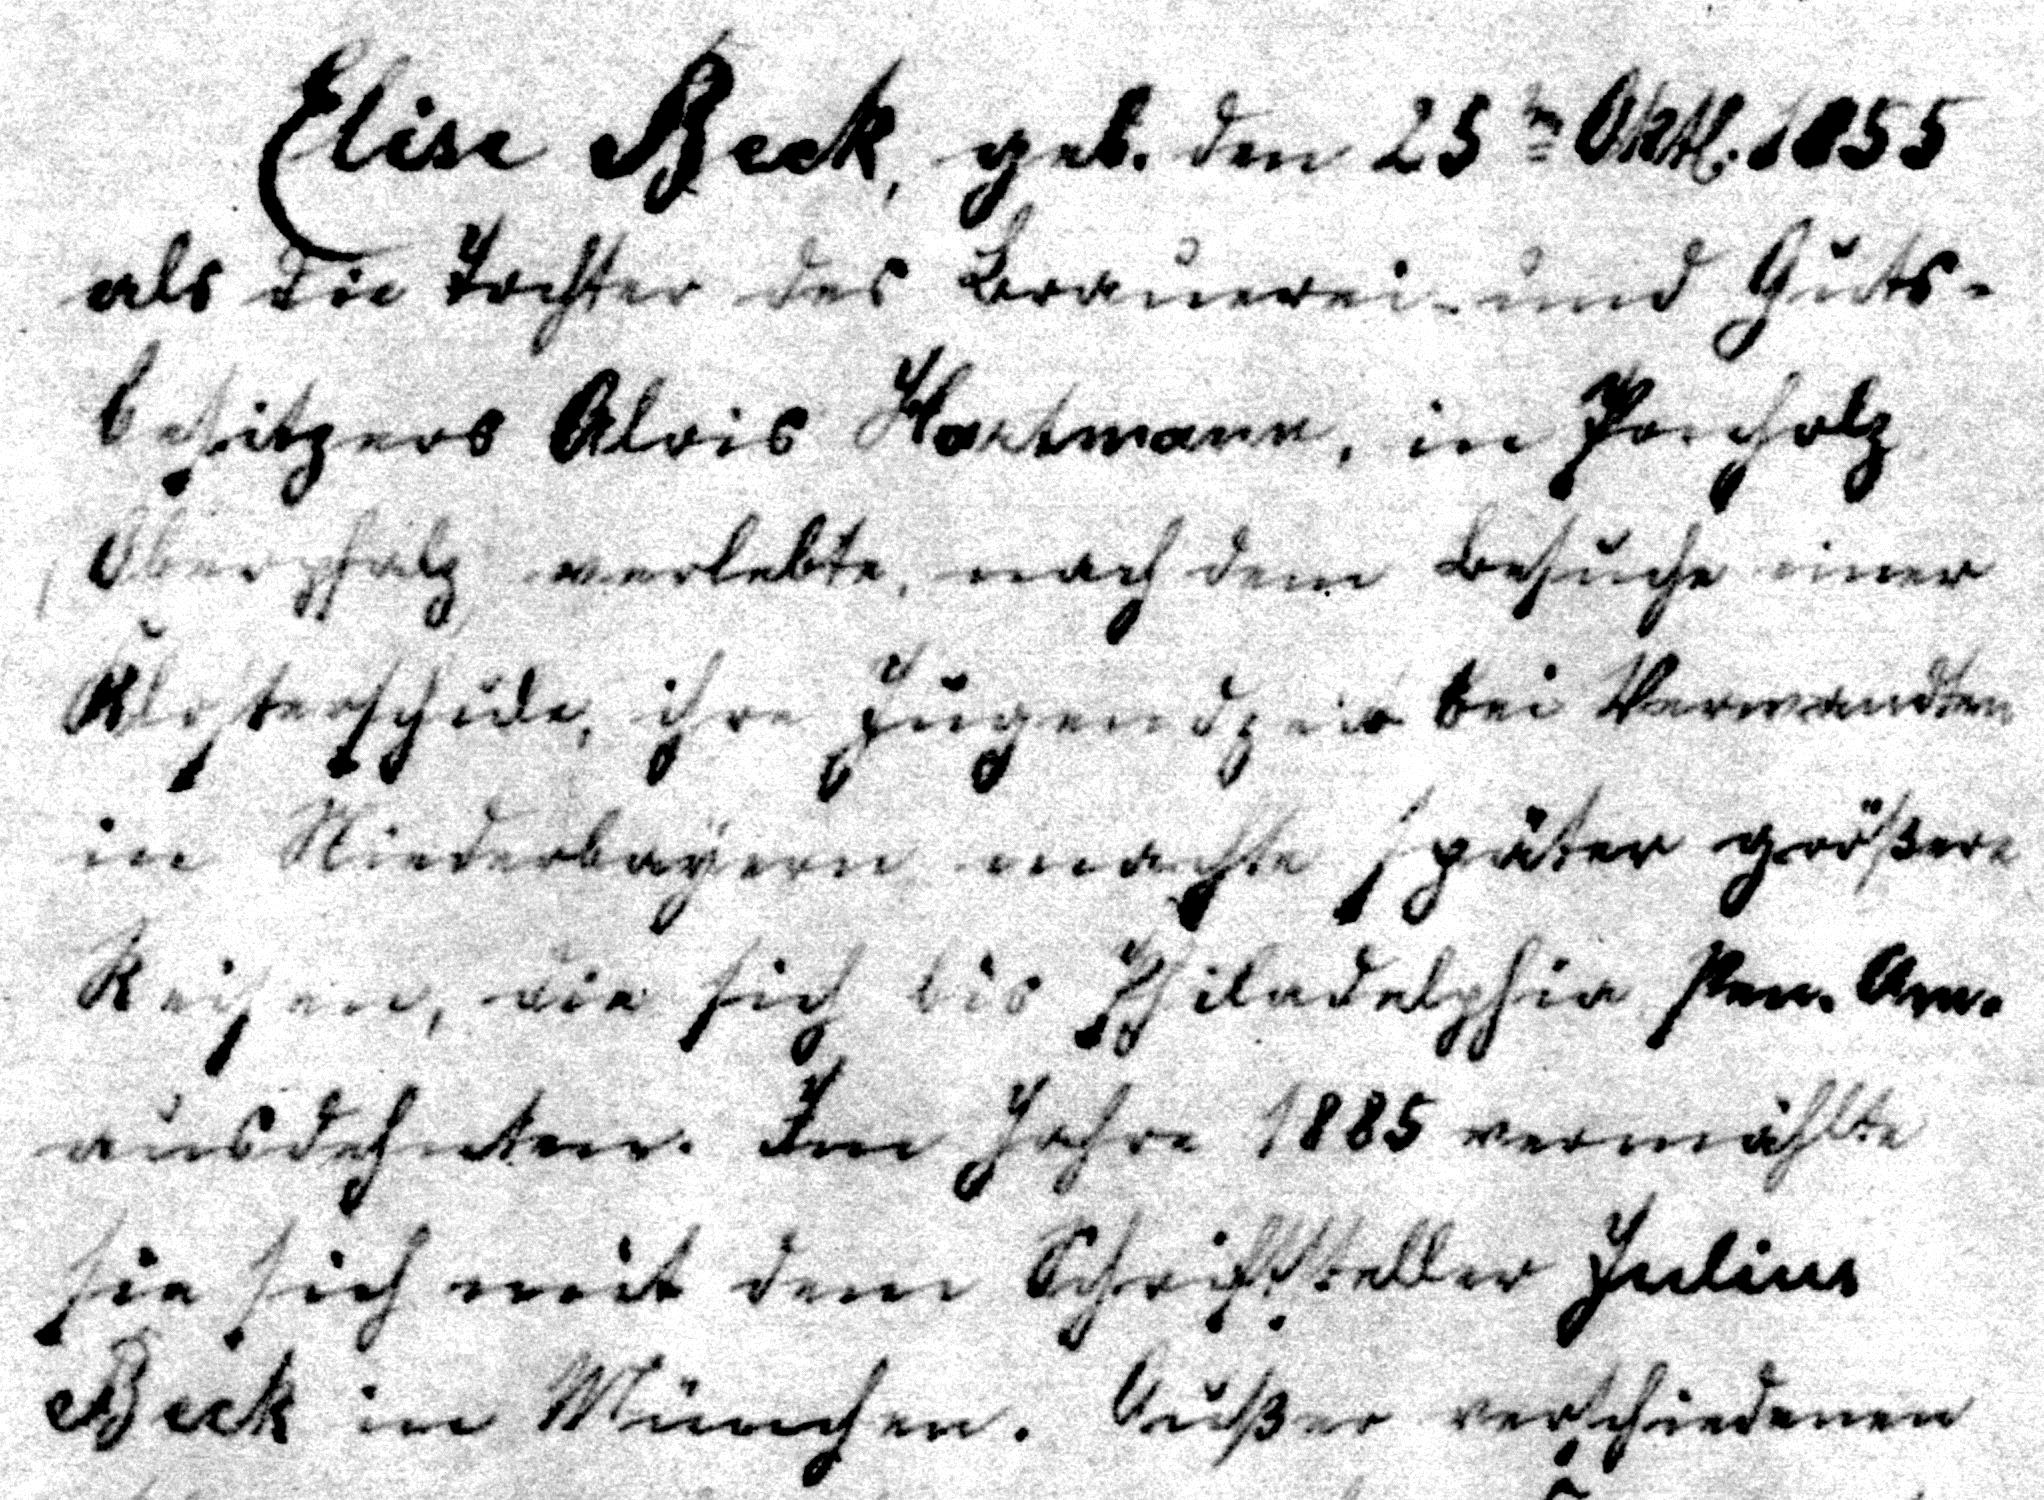 Elise Beck, geb. den 25ten Oktb. 1855
als die Tochter des Brauerei- und Guts-
besitzers Alois Hartmann, in
Oberpfalz verlebte, nach dem Besuche einer
Klosterschule, ihre Jugendzeit bei Verwandten
in Niederbayern machte später größere
Reisen, die sich bis Philadelphia Pen. Am.
ausdehnten. Im Jahre 1885 vermählte
sie sich mit dem Schriftsteller Julius
Beck in München. Außer verschiedenen